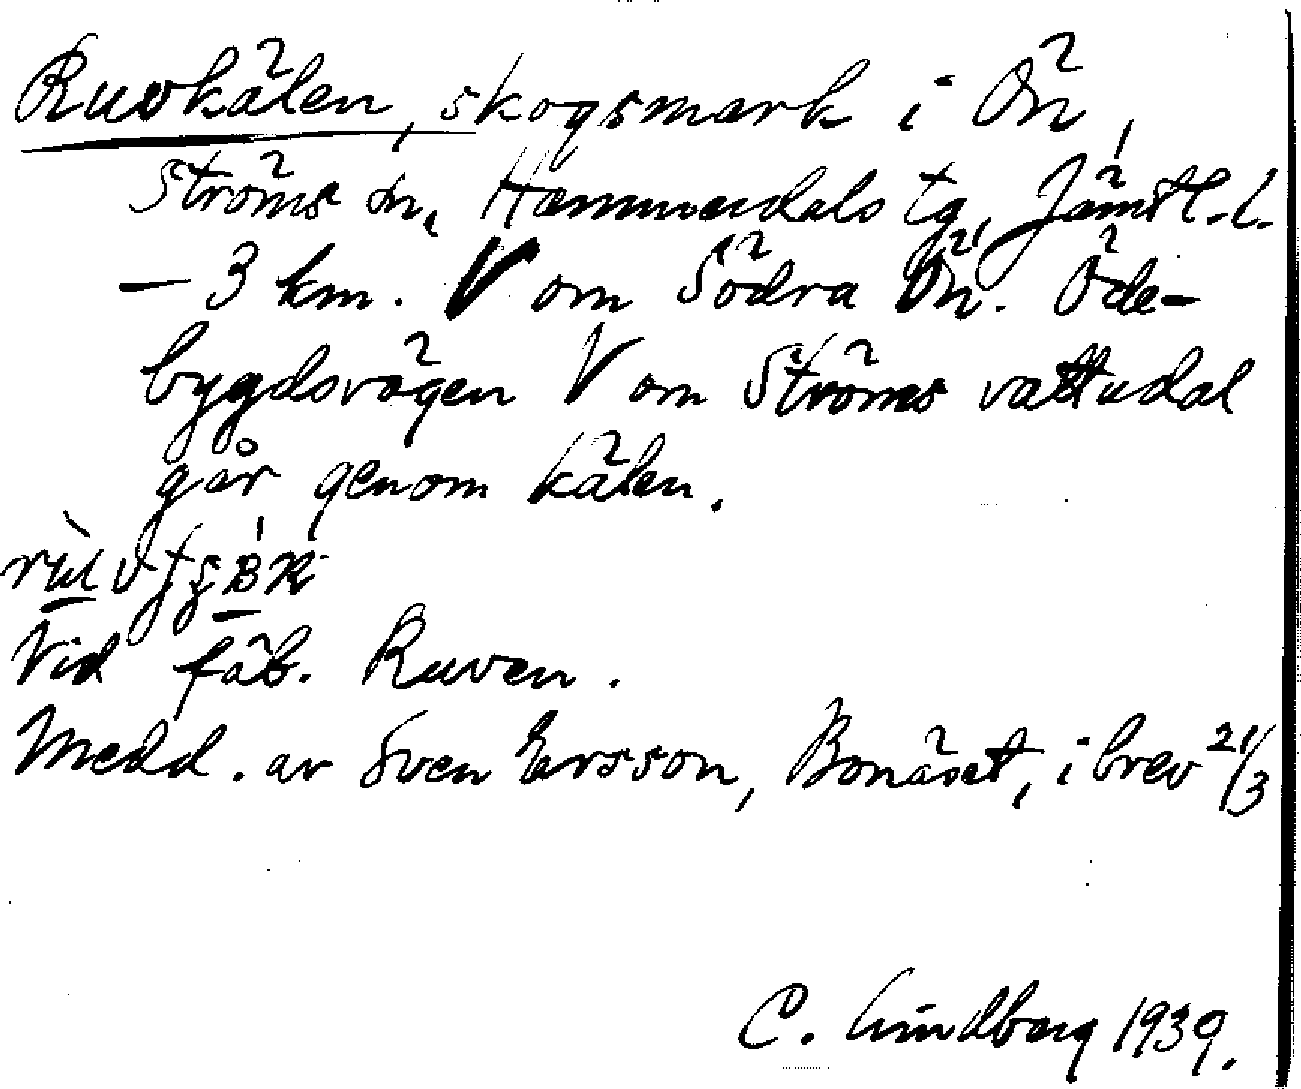 Ruvkälen, skogsmark i Ön,
Ströms sn, Hammerdals tg, Jämtl. l.
– 3 km. V om Södra Ön. Öde-
bygdsvägen V om Ströms vattudal
går genom kälen.
Vid fäb. Ruven.
Medd. av Sven Ersson, Bonäset, i brev 21/3
C. Lindberg 1939.